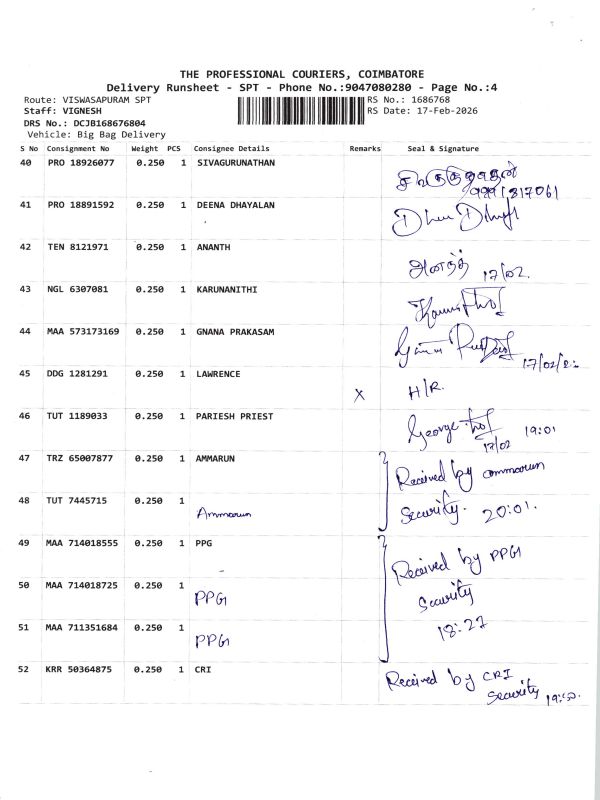 THE PROFESSIONAL COURIERS, COIMBATORE
Delivery Runsheet - SPT - Phone No.:9047080280 - Page No.:4
Route: VISWASAPURAM SPT RS No.: 1686768
Staff: VIGNESH RS Date: 17-Feb-2026
DRS No.: DCJB168676804
Vehicle: Big Bag Delivery
S No Consignment No Weight PCS Consignee Details Remarks Seal & Signature
40 PRO 18926077 0.250 1 SIVAGURUNATHAN
41 PRO 18891592 0.250 1 DEENA DHAYALAN
42 TEN 8121971 0.250 1 ANANTH ஆனந்த் 17/02.
43 NGL 6307081 0.250 1 KARUNANITHI
44 MAA 573173169 0.250 1 GNANA PRAKASAM
45 DDG 1281291 0.250 1 LAWRENCE X H/R.
46 TUT 1189033 0.250 1 PARIESH PRIEST George 17/02 19:01
47 TRZ 65007877 0.250 1 AMMARUN Received by ammarun
48 TUT 7445715 0.250 1 Ammarun Security. 20:01.
49 MAA 714018555 0.250 1 PPG Received by PPG
50 MAA 714018725 0.250 1 PPG Security
51 MAA 711351684 0.250 1 PPG 18:27
52 KRR 50364875 0.250 1 CRI Received by CRI
Security